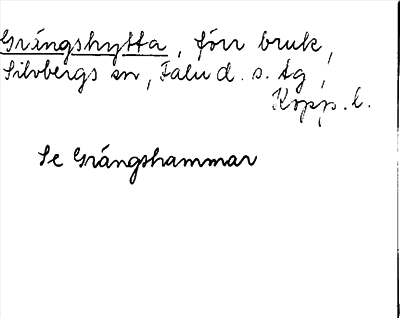 Grängshytta, förr bruk,
Silvbergs sn, Falu d. s. tg,
Kopp. l.
Se Grängshammar